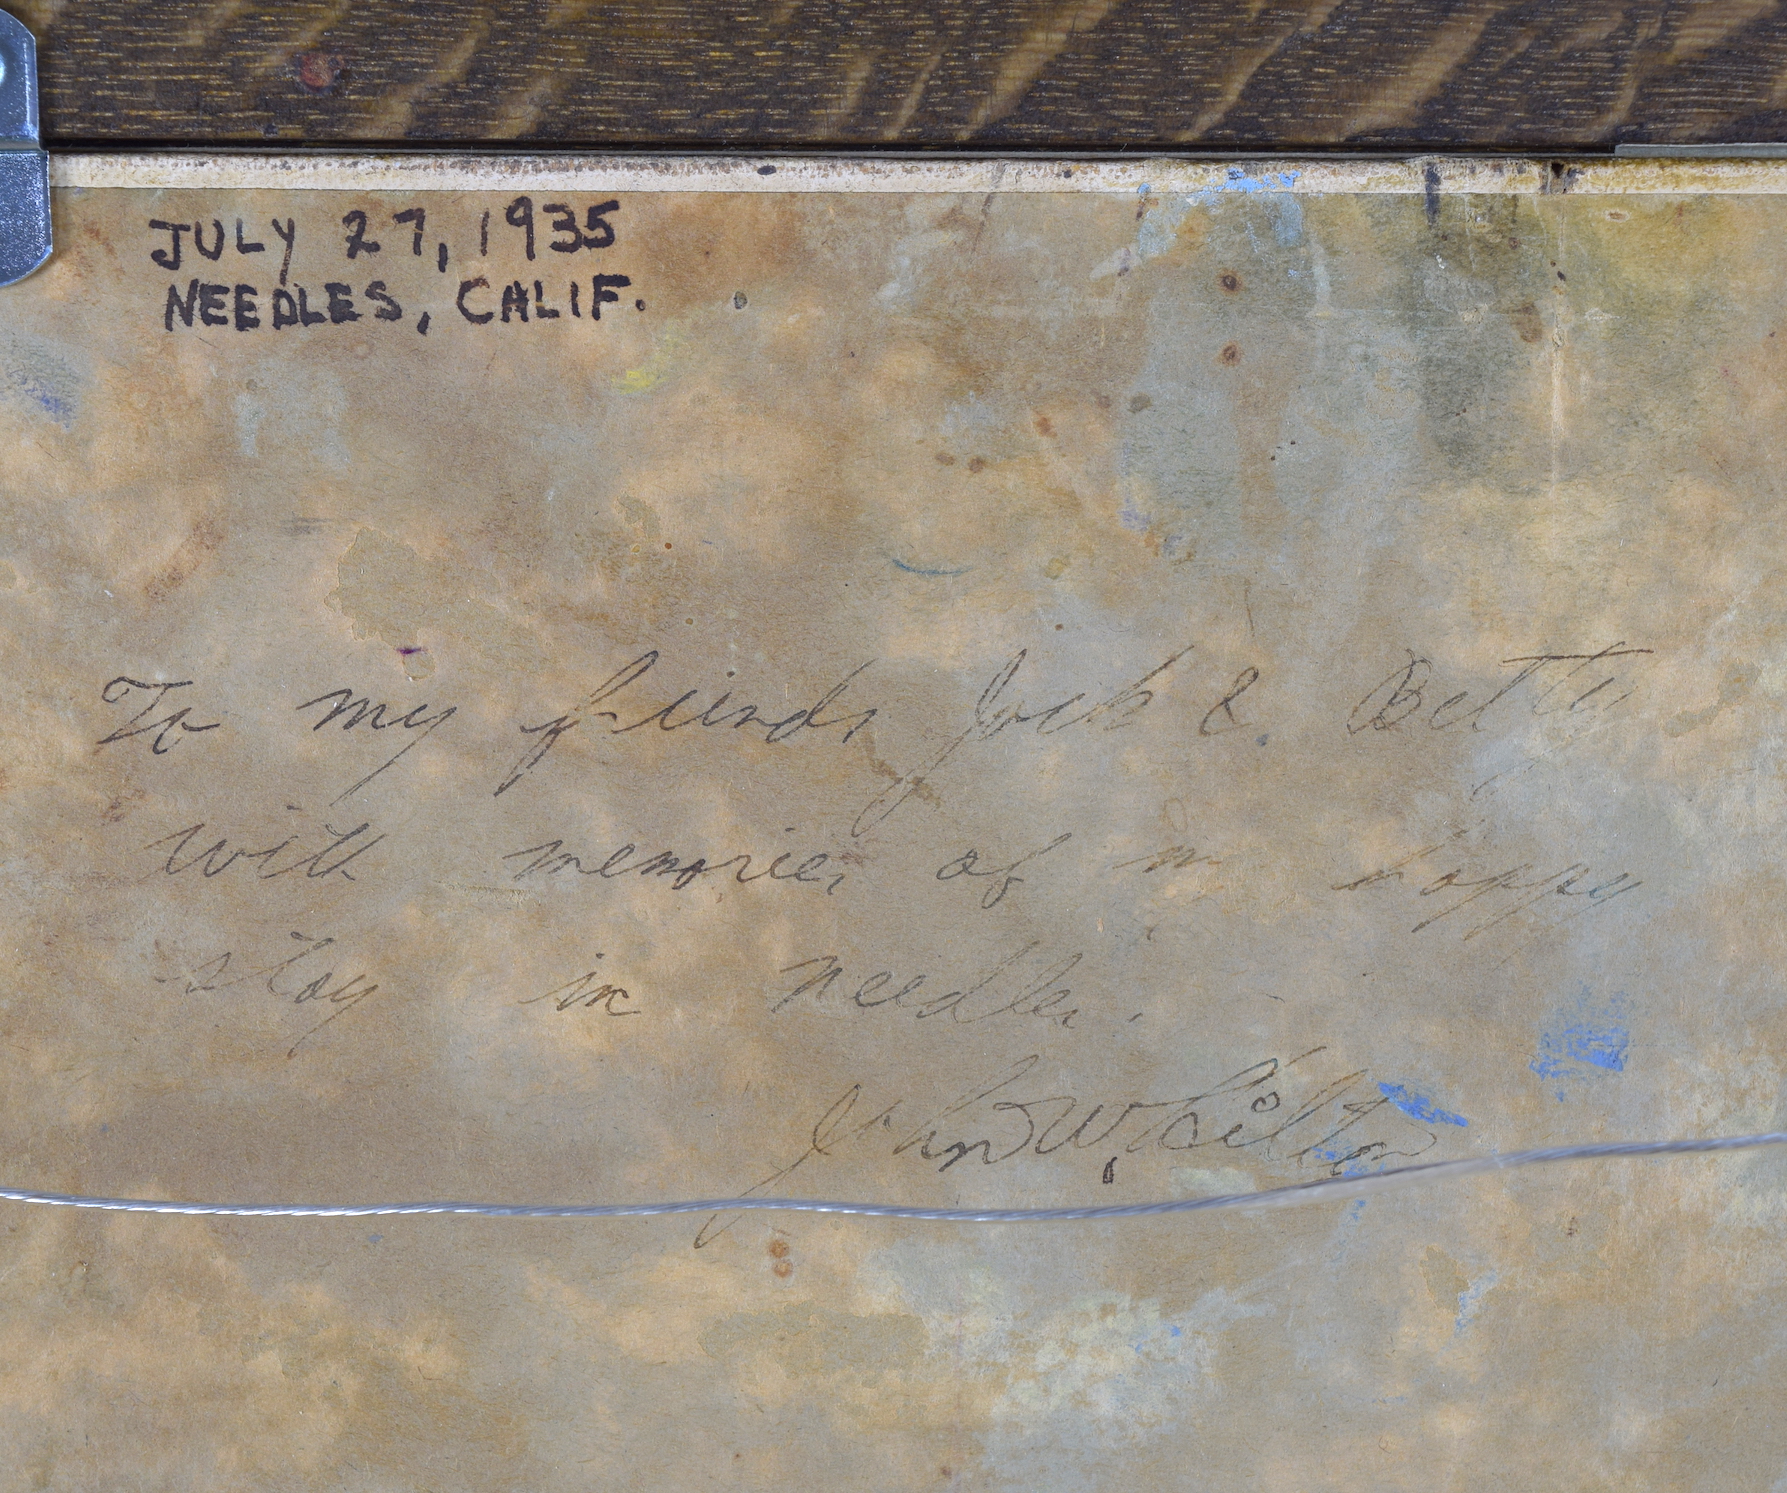 JULY 27, 1935
NEEDLES, CALIF.
To my friends Jack & Betty
with memories of happy
stay in Needles.
John W. Hilton